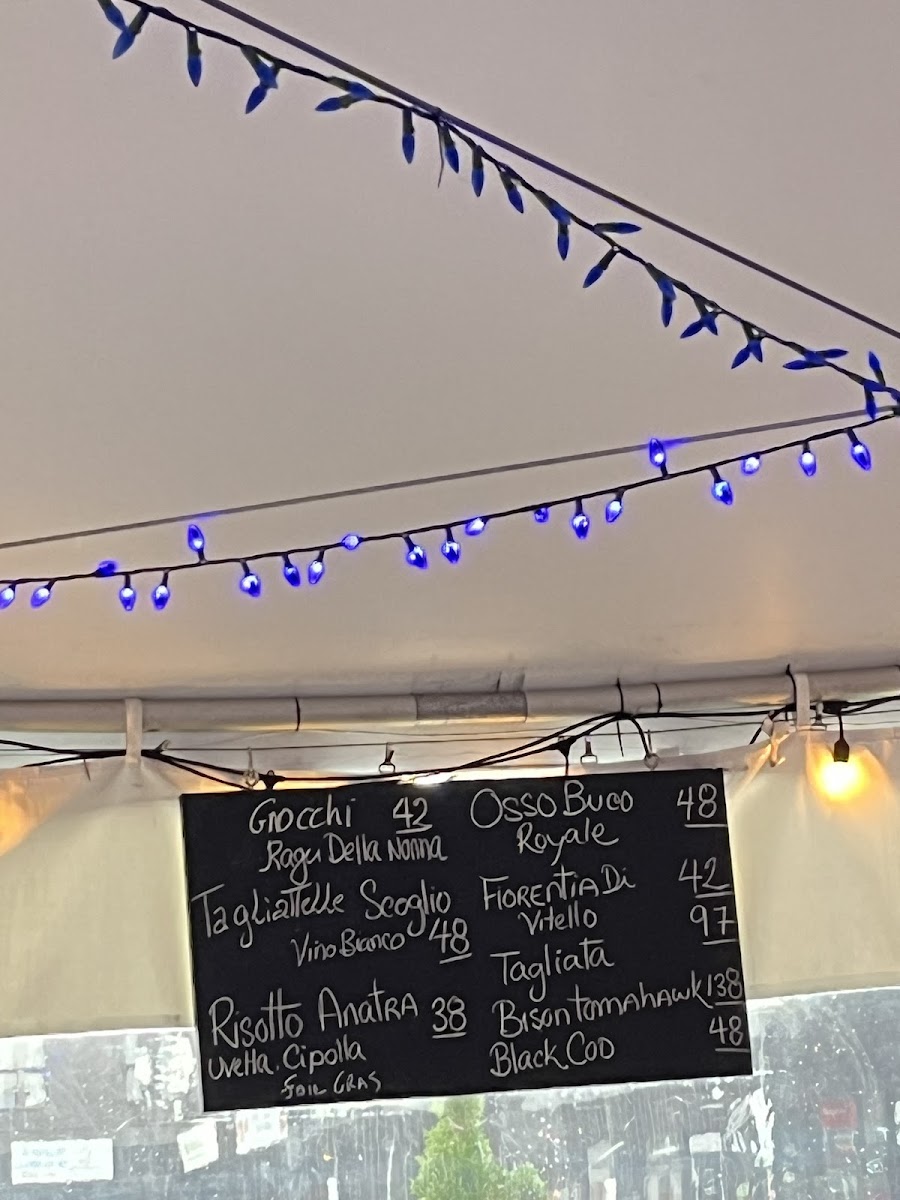 Gnocchi 42
Ragu Della Nonna
Tagliattelle Scoglio
Vino Bianco 48
Risotto Anatra 38
Uvetta. Cipolla
FOIL GRAS
Osso Buco 48
Royale
FIORENTIA Di 42
Vitello 97
Tagliata
Bison tomahawk 138
Black Cod 48